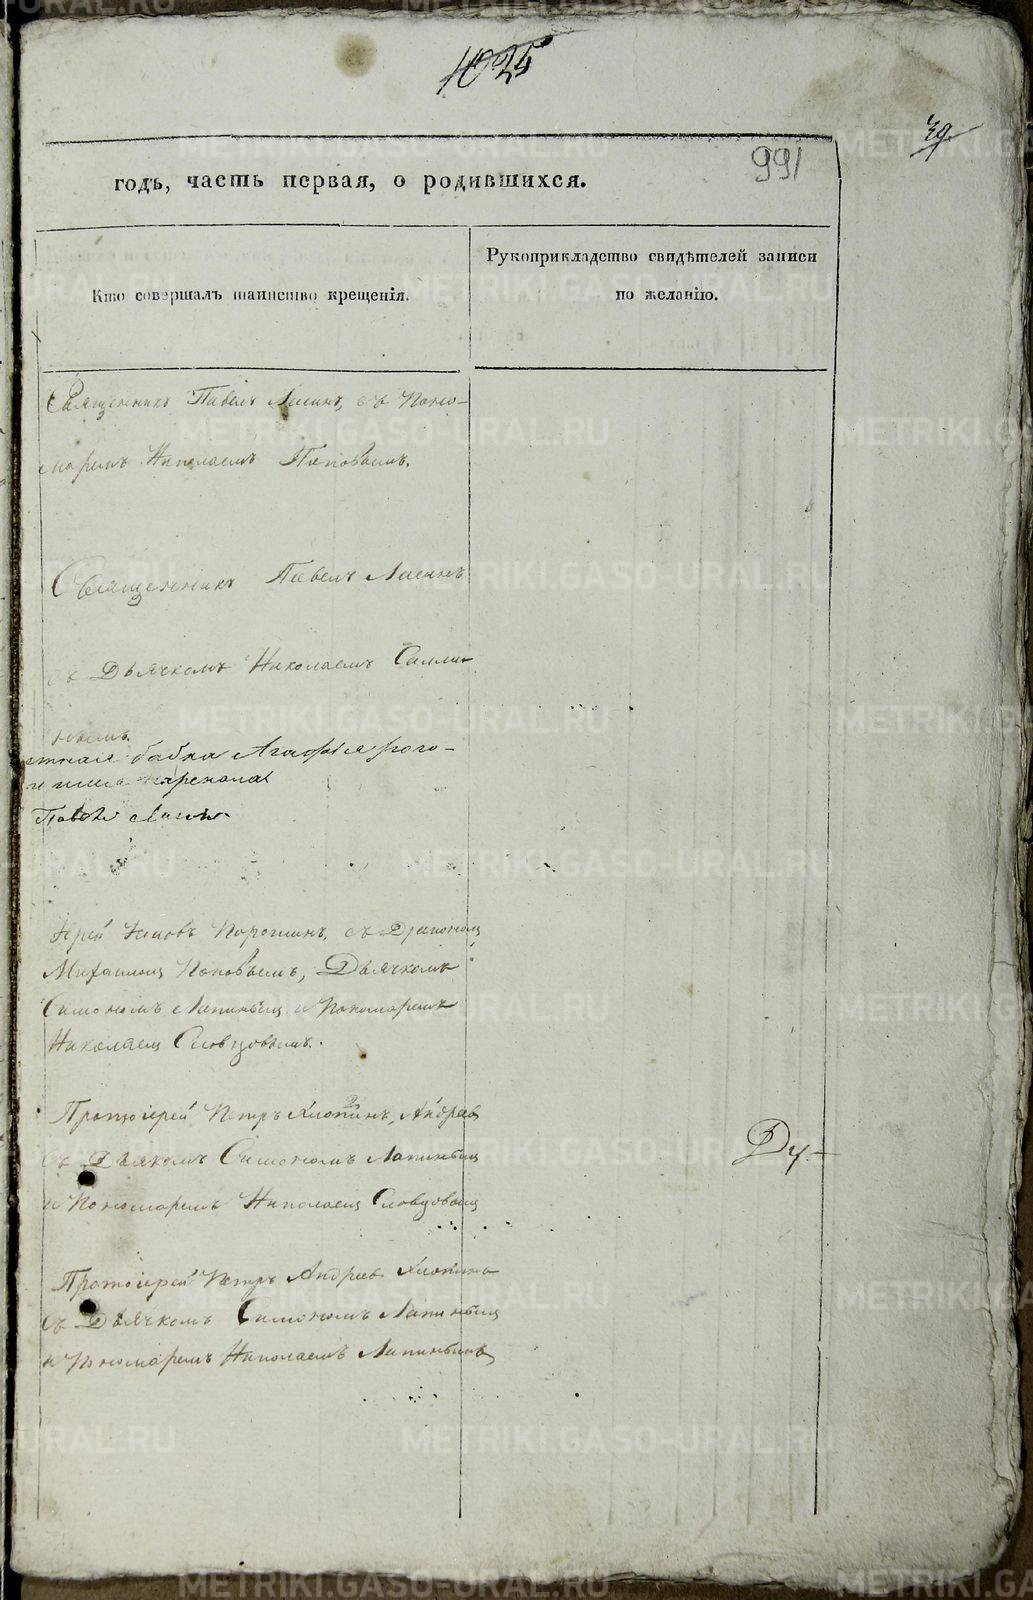 1025
991
годъ, часть первая, о родившихся.
Кто совершалъ таинство крещенія.
Рукоприкладство свидѣтелей записи
по желанію.
Священникъ Павелъ Лисинъ, съ Поно-
маремъ Николаемъ Поповымъ.
Священникъ Павелъ Лисинъ
съ Дьячкомъ Николаемъ
бабка Агафія
нарекала
Павелъ Лисинъ
Іерей Іаковъ Порошинъ, съ Діакономъ
Михаиломъ Поповымъ, Дьячкомъ
Симономъ Лапинымъ и Пономаремъ
Николаемъ Словцовымъ.
Протоіерей Петръ Хлопинъ, Андреевъ
съ Дьякомъ Симономъ Лапинымъ
и Пономаремъ Николаемъ Словцовымъ
Ду-
Протоіерей Петръ Андреевъ Хлопинъ
съ Дьячкомъ Симономъ Лапинымъ
и Пономаремъ Николаемъ Лапинымъ
METRIKI.GASO-URAL.RU